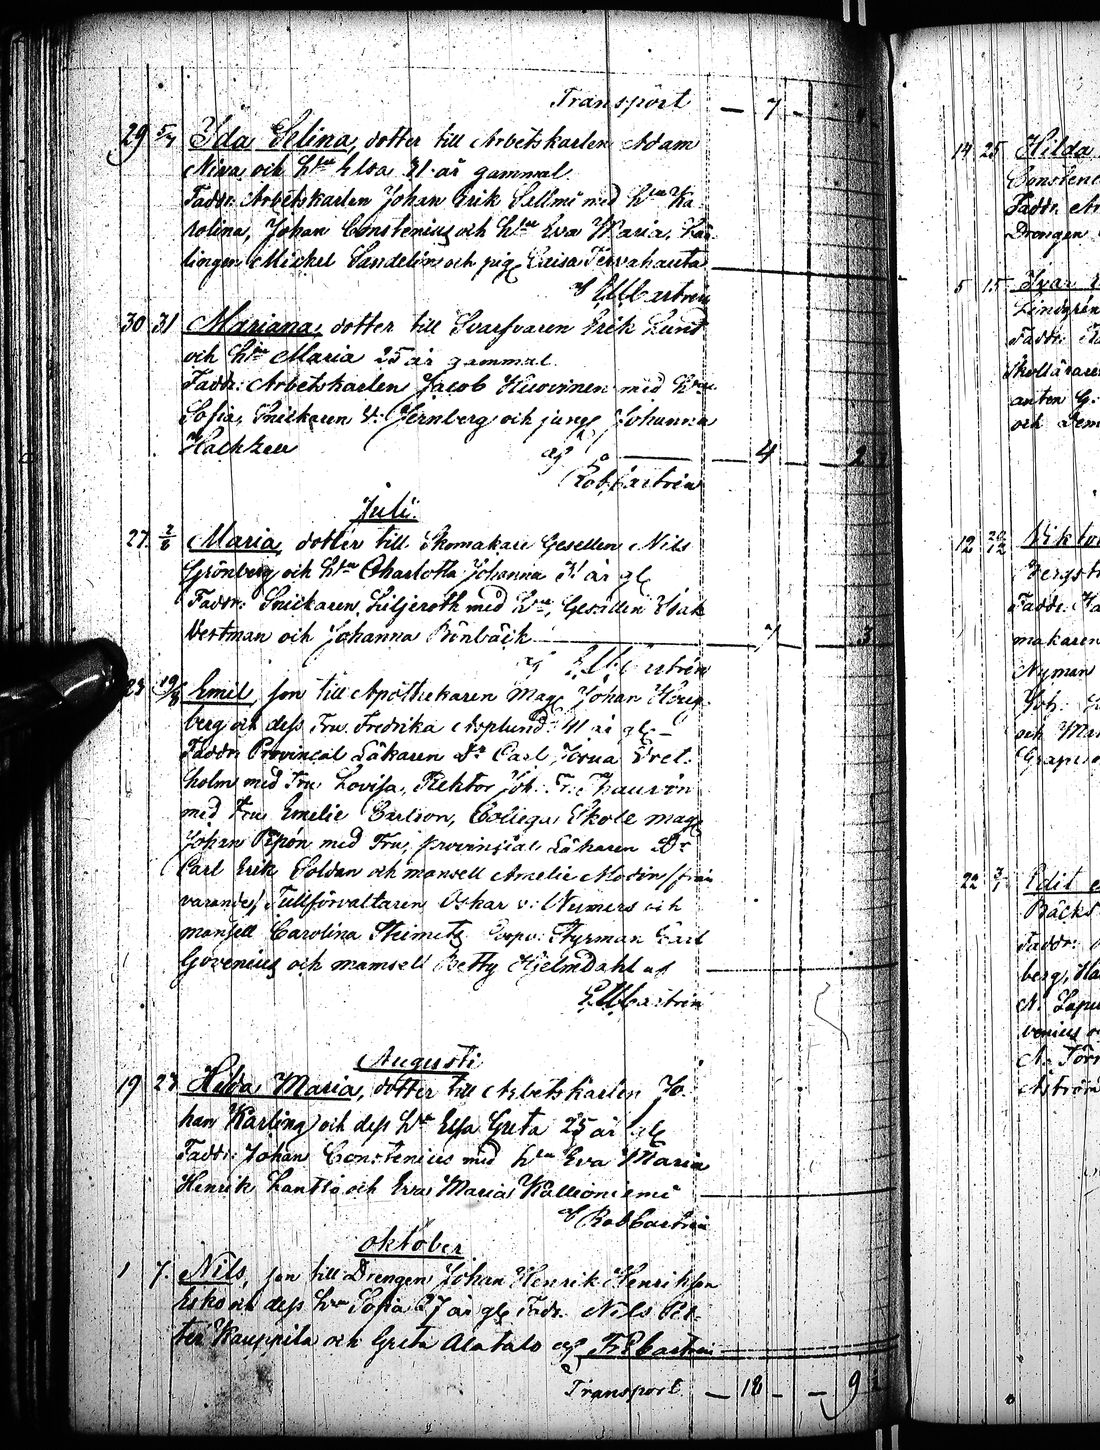 Transport — 7 —
29 5/7 Ida Selina, dotter till Arbetskarlen Adam
Niva och Hu Elsa 31 år gammal
Faddr: Arbetskarlen Johan Erik Sellmi med Hu Ka-
rolina, Johan Constenius och Hu Eva Maria,
lingen Mickel Sandelin och pig Caisa Tervahauta
af EMCastrén
30 31 Mariana, dotter till Svarfvaren Erik Lund
och Hu Maria 25 år gammal.
Faddr: Arbetskarlen Jacob Huovinen med Hu
Sofia, Snickaren V. Jernberg och jungf Johanna
Hackzell af — 4 — 2
Rob. Castrén
Juli.
27. 2/8 Maria, dotter till Skomakare Gesellen Nils
Grönberg och Hu Charlotta Johanna år gl
Faddr: Snickaren Liljeroth med Hu, Gesellen Isak
Vertman och Johanna Rönbäck — 7 — 3
af EMCastrén
23 19/8 Emil, son till Apothekaren Mag Johan Höeg-
berg och dess Fru Fredrika Asplund 41 år gl —
Faddr: Provincial Läkaren Dr Carl Jonna Bret-
holm med Fru Lovisa, Rektor Joh. Fr. Thaurén
med Fru Emelie Carlson, Collega Skole mag
Johan Pipón med Fru, provincial Läkaren Dr
Carl Erik Soldan och mamsell Amelie Modén /från
varande/ Tullförvaltaren Oskar v: Numers och
mamsell Carolina Steimetz Coopv: Styrman Carl
Govenius och mamsell Betty Hjelmdahl af
EMCastrén
Augusti
19 23 Hilda Maria, dotter till Arbetskarlen Jo-
han Karling och dess Hu Elsa Greta 25 år gl
Faddr: Johan Constenius med hu Eva Maria
Henrik Lantto och Eva Maria Kallioniemi
af Rob Castrén
Oktober
1 7. Nils, son till Drengen Johan Henrik Henriksson
Esko och dess Hu Sofia 27 år gl Fadr. Nils Pet-
ter Kauppila och Greta Alatalo af FECastrén
Transport — 18 — — 9
14 25 Hilda
Constenius
Faddr. Ar
Drengen
5 15 Ivar
Lindgren
Faddr:
Skollärare
anten G.
och Dem
12 20/12 Viktor
Bergst
Faddr:
makaren
Nyman
Joh.
och Mar
Grape
22 3/1 Edit
Bäcks
Faddr:
berg, Ha
N. Lapu
venius o
A: Törn
Åström